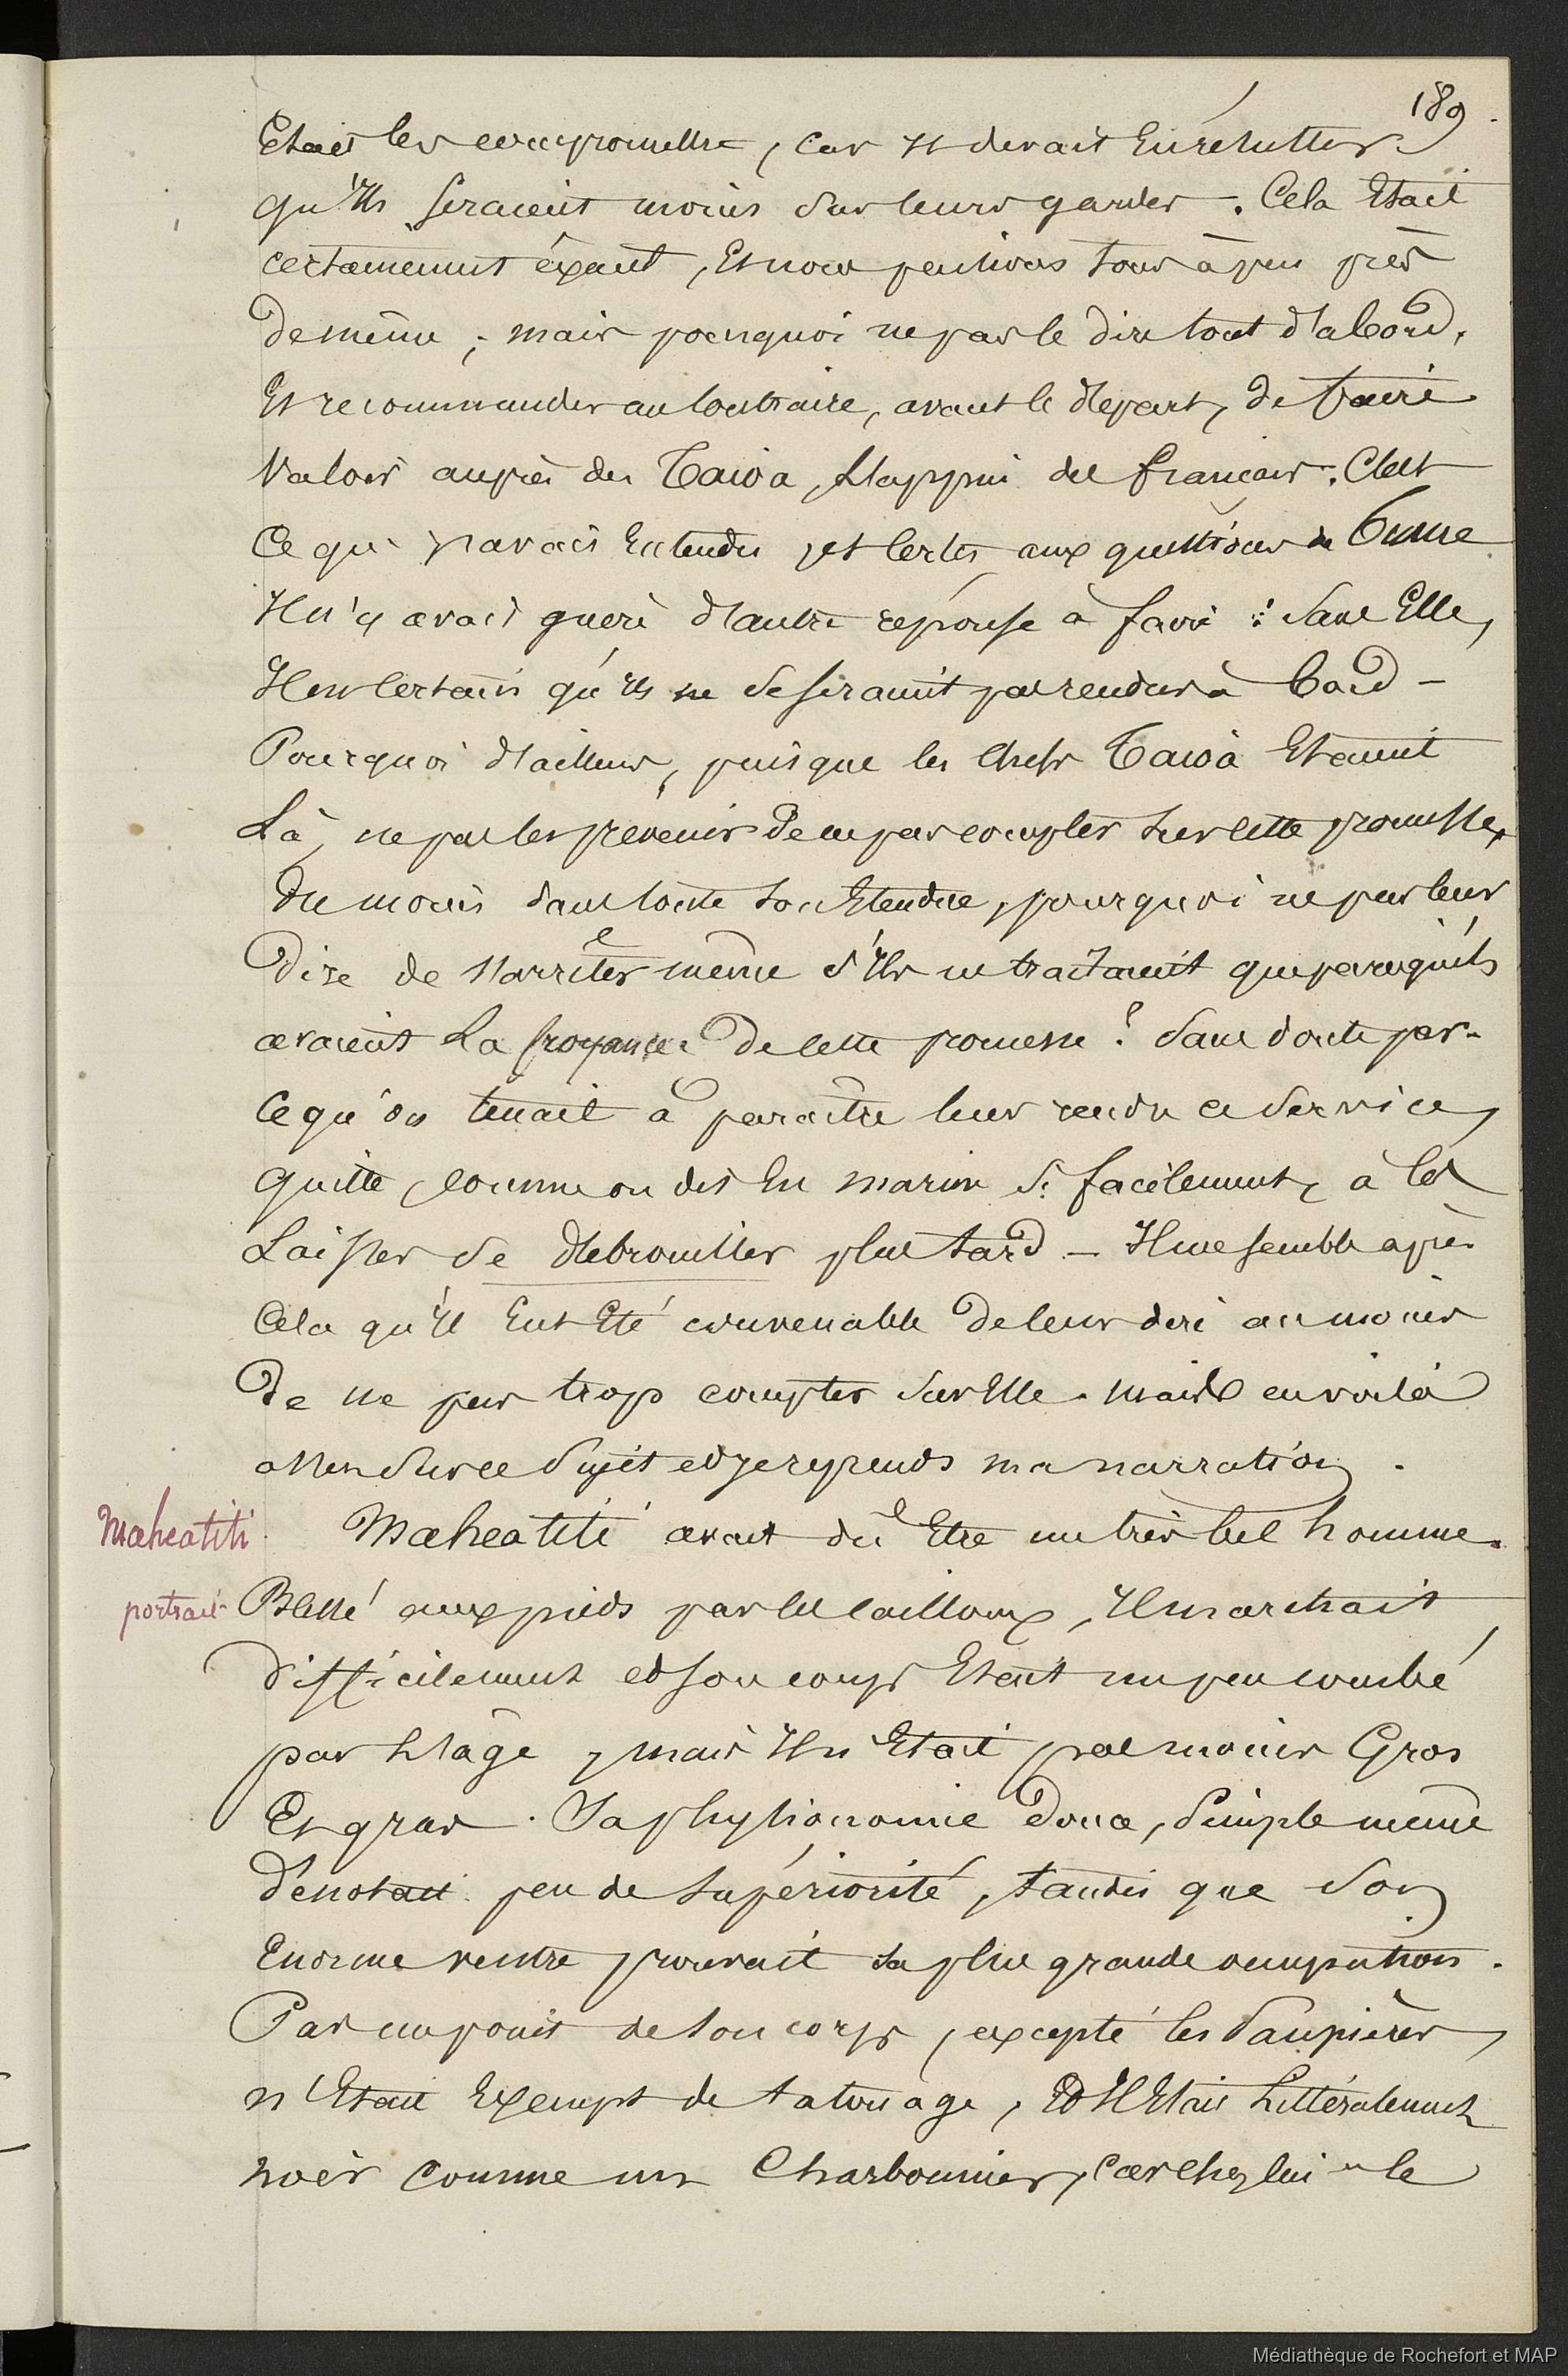 189
Etait les compromettre, car Il devait En résulter
qu'Ils seraient moins sur leurs gardes. Cela Etait
certainement éxact, Et nous pensions tous à peu près
de même ; mais pourquoi ne pas le dire tout d'abord,
Et recommander au Contraire, avant le départ, de faire
Valoir auprès des Taioa, l'appui des français. C'est
Ce que j'avais Entendu, et Certes aux questions de
Il n'y avait guère d'autre réponse à faire : sans Elle,
Il est Certain qu'Ils ne se seraient pas rendus à bord –
Pourquoi d'ailleurs, puisque les Chefs Taioa Etaient
Là, ne pas les prévenir de ne pas compter sur cette promesse,
Du moins dans toute son Etendue, pourquoi ne pas leur
Dire de s'arrêter même s'Ils ne traitaient que parcequ'ils
avaient La croyance de cette promesse ? Sans doute par-
Cequ'on tenait à paraître leur rendre ce service,
quitte, comme on dit En marin si facilement, à les
Laisser se débrouiller plus tard – Il me semble après
Cela qu'Il Eut Eté convenable de leur dire au moins
De ne pas trop compter sur Elle. Mais en voilà
assez sur ce sujet et je reprends ma narration.
Maheatiti
portrait
Maheatiti avait dû Etre un très bel homme.
Blessé aux pieds par les cailloux, Il marchait
difficilement et son corps Etait un peu courbé
par l'âge, mais Il n'Etait pas moins Gros
Et gras. Sa physionomie douce, simple même
Dénotait peu de supériorité, tandis que son
Enorme ventre prouvait sa plus grande occupation.
Pas un point de son corps, excepté les Paupières,
n'Etait Exempt de tatouage, Et Il Etait Littéralement
noir comme un Charbonnier, car chez lui le
Médiathèque de Rochefort et MAP